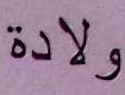 ولادة